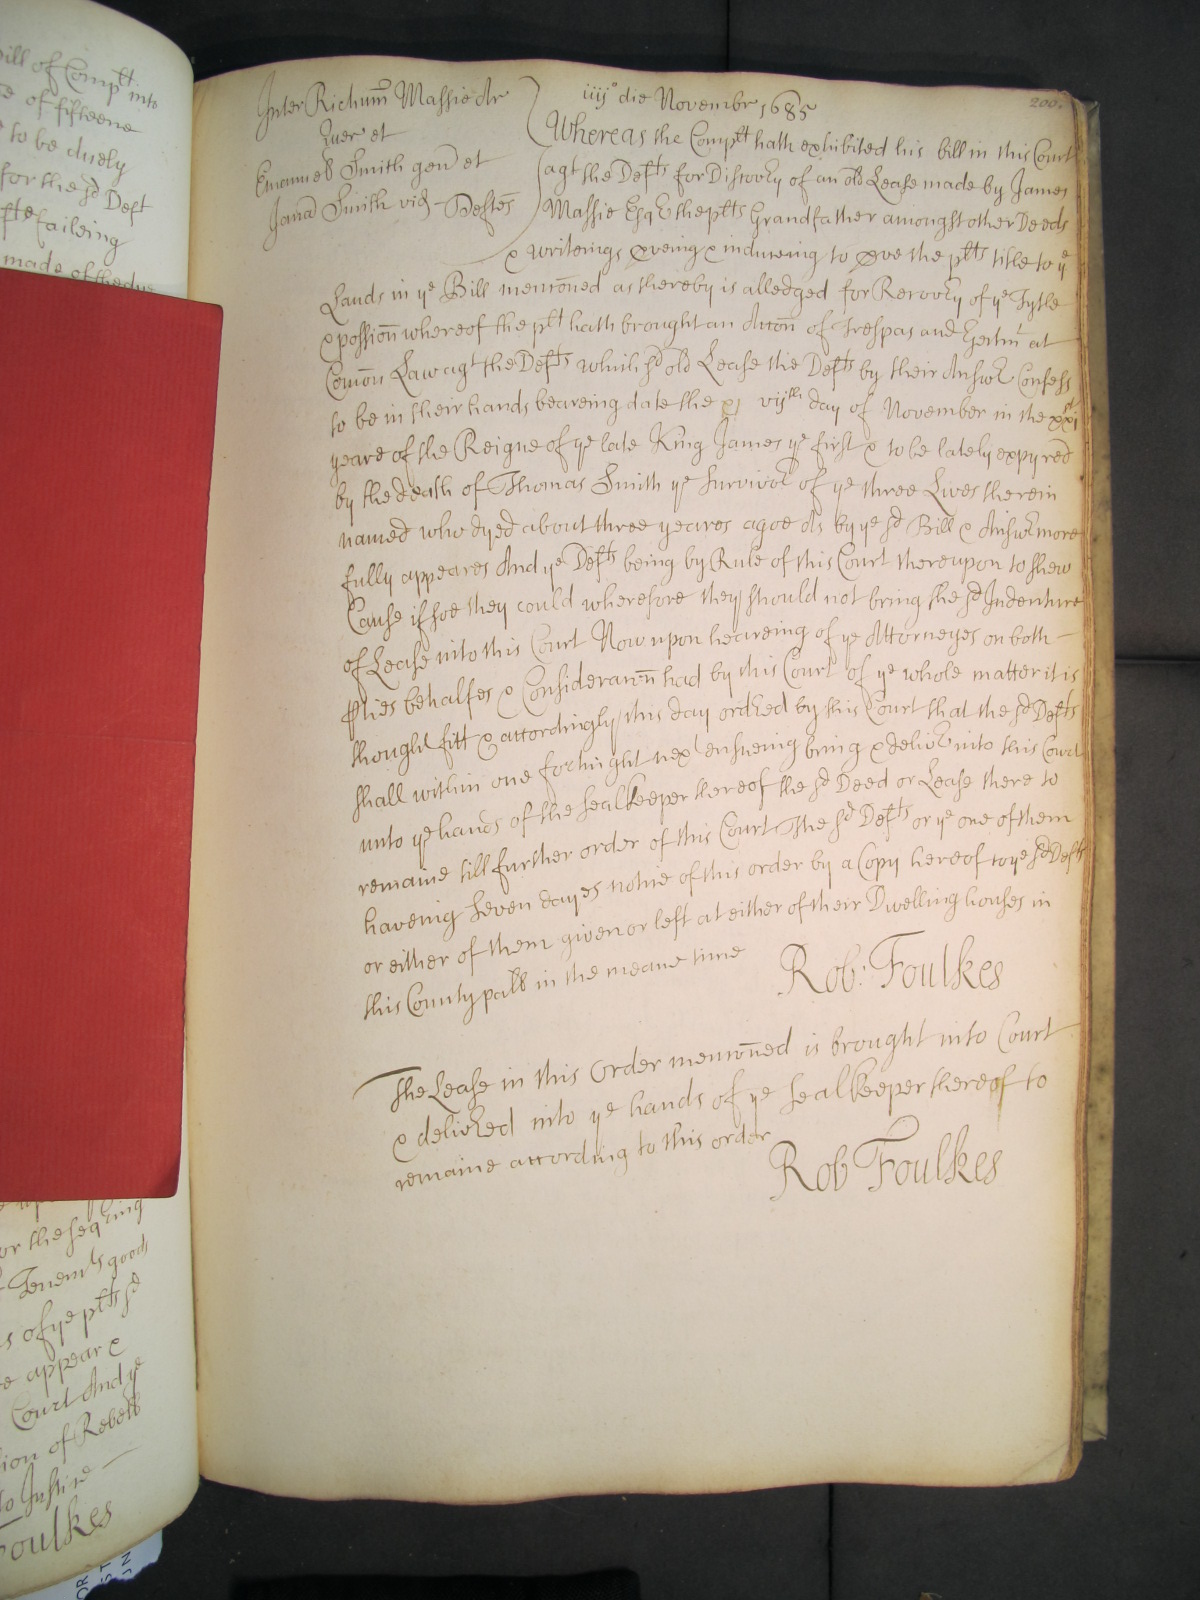 200.
Inter Richum Massie Ar
Quer et
Emanuel Smith gen et
Jana Smith vid Deftes
iiij° die Novembr 1685
Whereas the Complt hath exhibited his bill in this Court
agt the Defts for Discovy of an old Lease made by James
Massie Esq the plts Grandfather amongst other Deeds
& writeings pveing & induceing to pve the plts title to ye
Lands in ye Bill menconed as thereby is alledged for Recovy of ye Tytle
& possion whereof the plt hath brought an Accon of Trespas and Ejectmt at
Comon Law agt the Defts which sd old Lease the Defts by their Answr Confess
to be in their hands beareing date the viijth day of November in the xxist
yeare of the Reigne of ye late King James ye first & to be lately expyred
by the death of Thomas Smith ye Survivor of ye three Lives therein
named who dyed about three yeares agoe As by ye sd Bill & Answr more
fully appeares And ye Defts being by Rule of this Court thereupon to shew
Cause if soe they could wherefore they should not bring the sd Indenture
of Lease into this Court Now upon heareing of ye Attorneyes on both
pties behalfes & Consideracon had by this Court of ye whole matter it is
thought fitt & accordingly this day ordred by this Court that the sd Defts
shall within one fortnight next ensueing bring & deliver into this Court
unto ye hands of the sealkeeper thereof the sd Deed or Lease there to
remaine till further order of this Court The sd Defts or ye one of them
haveing seven dayes notice of this order by a Copy hereof to ye sd Defts
or either of them given or left at either of their Dwelling houses in
this County pall in the meane time
Rob: Foulkes
The Lease in this Order menconed is brought into Court
& delivered into ye hands of ye sealkeeper thereof to
remaine according to this order
Rob Foulkes
Bill of Complt into
of fifteene
to be duely
for the sd Deft
faileing
made of the
or the seqring
Tenemts goods
of ye plts sd
appear &
Court And ye
of Rebell
to Justice
Foulkes